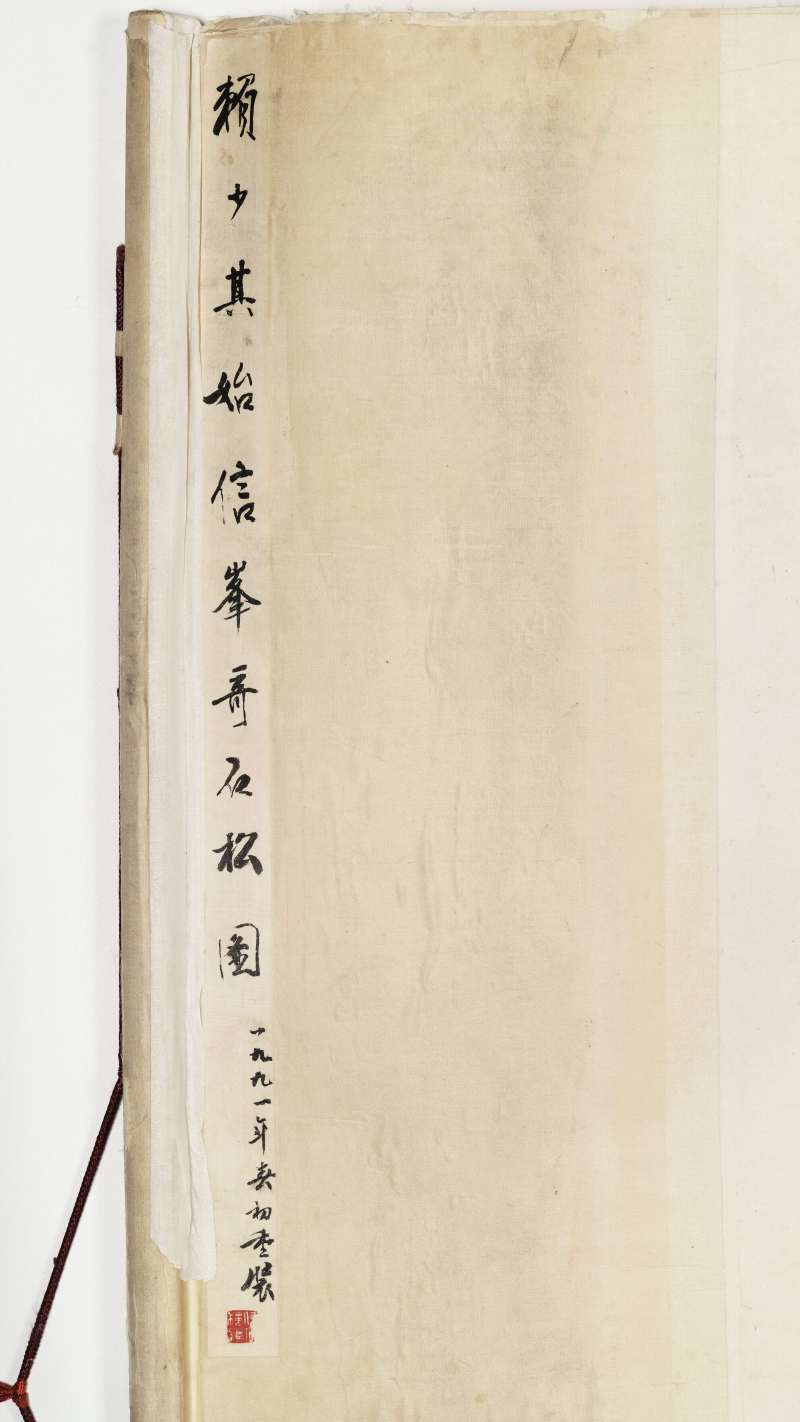 賴少其始信峯奇石松圖
一九九一年春初重裝